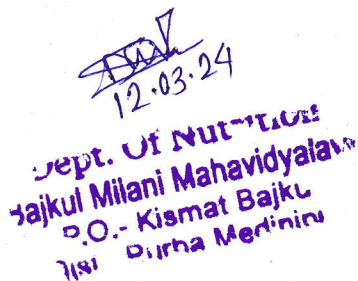 12.03.24
Dept. Of Nutrition
Bajkul Milani Mahavidyalaya
P.O.- Kismat Bajkul
Dist Purba Medinipur